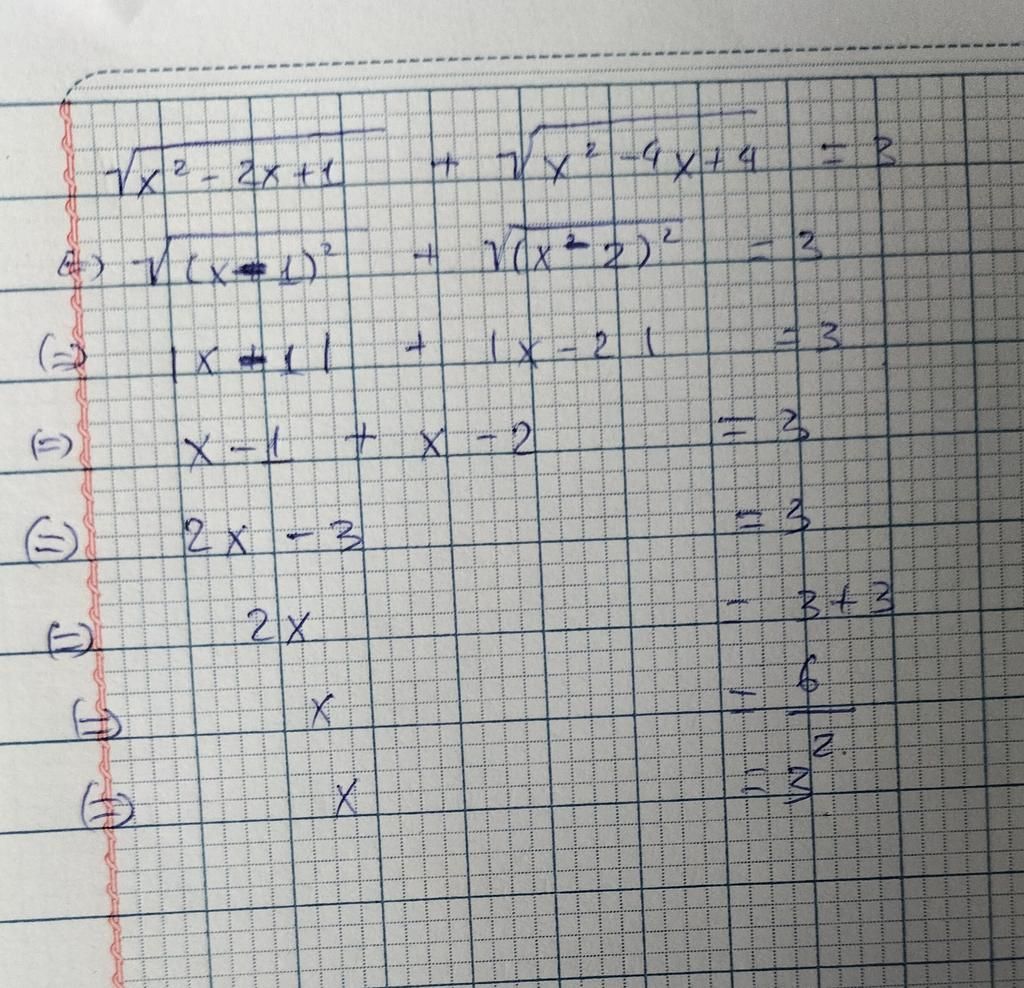 √(x² - 2x + 1) + √(x² - 4x + 4) = 3
(=) √((x - 1)²) + √((x - 2)²) = 3
(=) |x - 1| + |x - 2| = 3
(=) x - 1 + x - 2 = 3
(=) 2x - 3 = 3
(=) 2x = 3 + 3
(=) x = 6/2
(=) x = 3